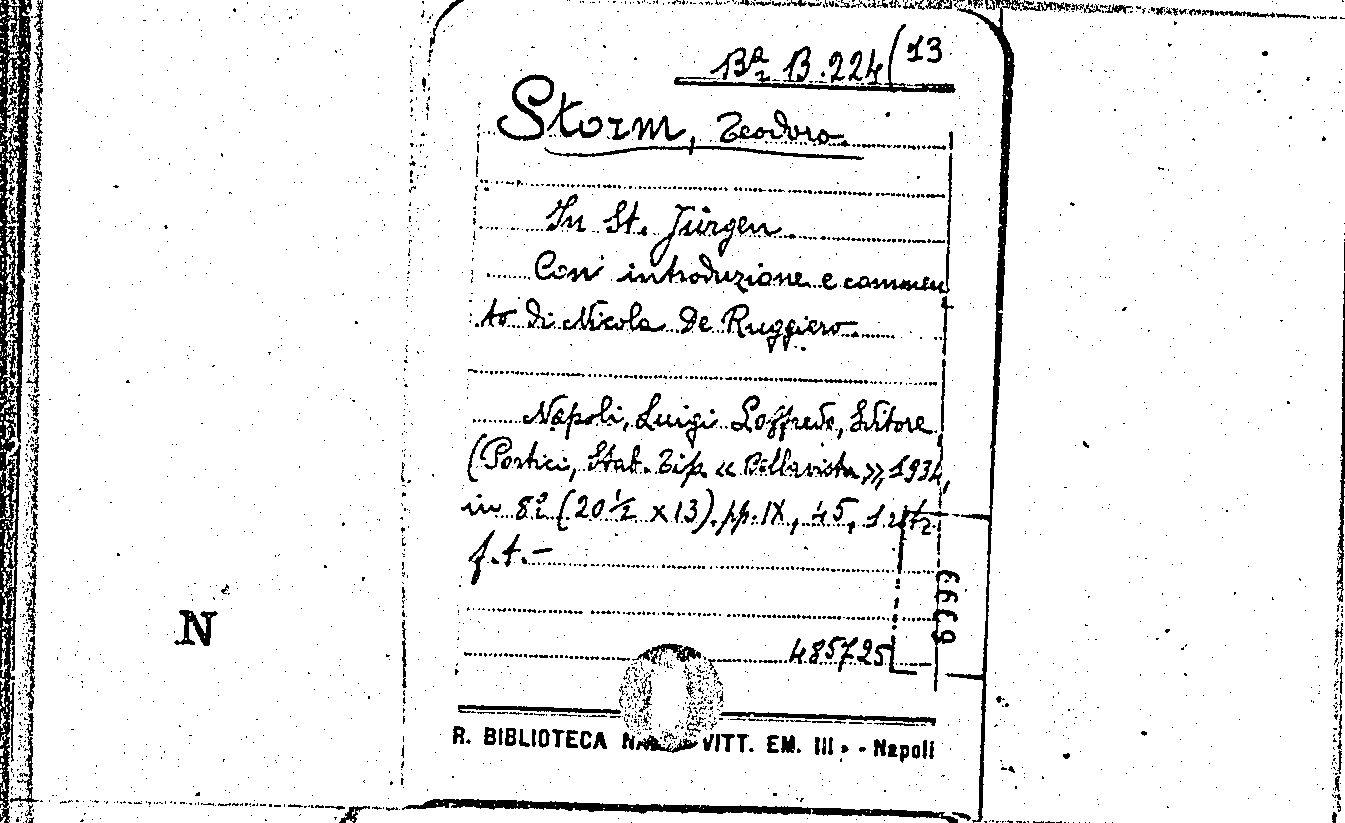 Bª B.224(13
Storm, Teodoro.
In St. Jürgen.
Con introduzione e commen
to di Nicola De Ruggiero.
Napoli, Luigi Loffredo, Editore
(Portici, Stab. Tip. « Bellavista », 1934,
in 8º (20 ½ x 13). pp. IX, 45, 1
f.t.-
6399
N
485725
R. BIBLIOTECA VITT. EM. III » - Napoli